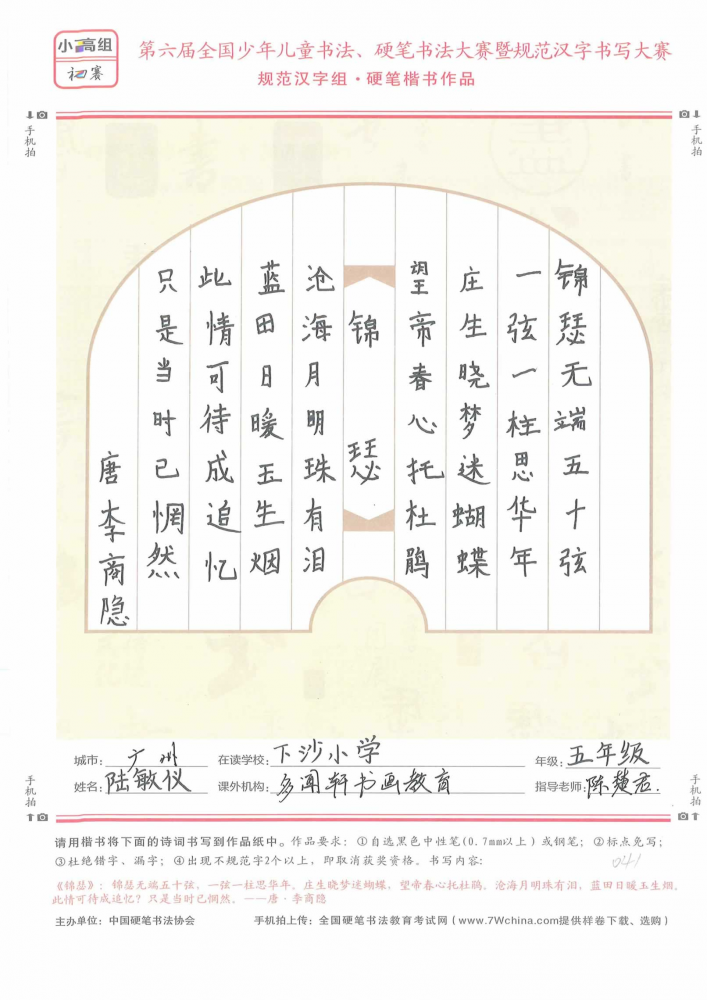 小高组
初赛
第六届全国少年儿童书法、硬笔书法大赛暨规范汉字书写大赛
规范汉字组·硬笔楷书作品
手机拍
手机拍
锦瑟无端五十弦
一弦一柱思华年
庄生晓梦迷蝴蝶
望帝春心托杜鹃
锦瑟
沧海月明珠有泪
蓝田日暖玉生烟
此情可待成追忆
只是当时已惘然
唐李商隐
城市：广州 在读学校：下沙小学 年级：五年级
姓名：陆敏仪 课外机构：多闻轩书画教育 指导老师：陈楚君.
手机拍
手机拍
请用楷书将下面的诗词书写到作品纸中。作品要求：①自选黑色中性笔(0.7mm以上)或钢笔；②标点免写；
③杜绝错字、漏字；④出现不规范字2个以上，即取消获奖资格。书写内容：
041
《锦瑟》：锦瑟无端五十弦，一弦一柱思华年。庄生晓梦迷蝴蝶，望帝春心托杜鹃。沧海月明珠有泪，蓝田日暖玉生烟。
此情可待成追忆？只是当时已惘然。——唐·李商隐
主办单位：中国硬笔书法协会 手机拍上传：全国硬笔书法教育考试网(www.7Wchina.com提供样卷下载、选购)